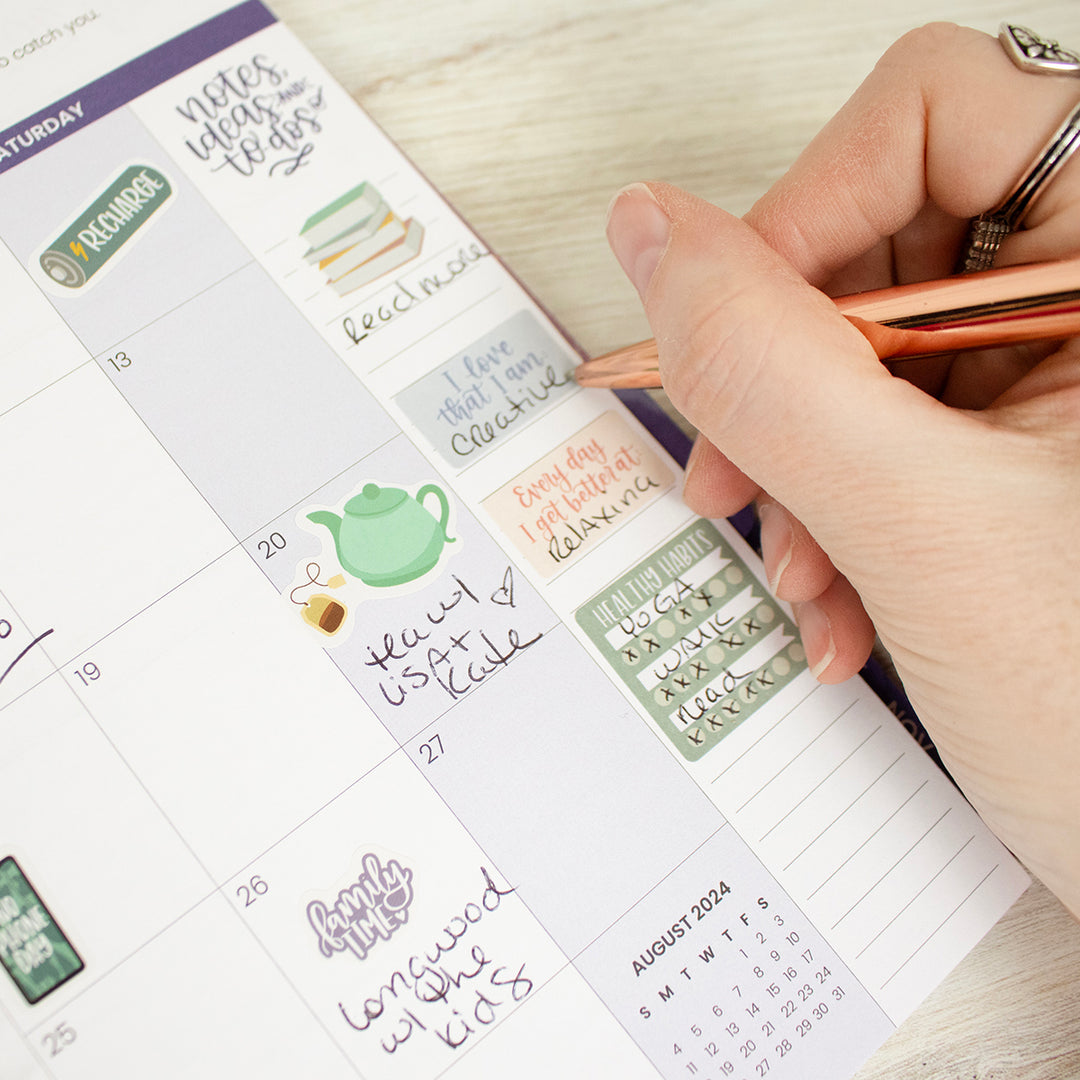 to catch you.
ATURDAY
notes,
ideas AND
to-dos
RECHARGE
Read more
13
I love
that I am
creative
Every day
I get better at:
Relaxing
20
tea w/
Lisa +
Kate
HEALTHY HABITS
YOGA
x x x x
WALK
x x x x x x
Read
x x x x x
19
27
26
family
TIME
Longwood
w/ the
kids
PHONE
Day
25
AUGUST 2024
S M T W T F S
1 2 3
4 5 6 7 8 9 10
11 12 13 14 15 16 17
19 20 21 22 23 24
27 28 29 30 31